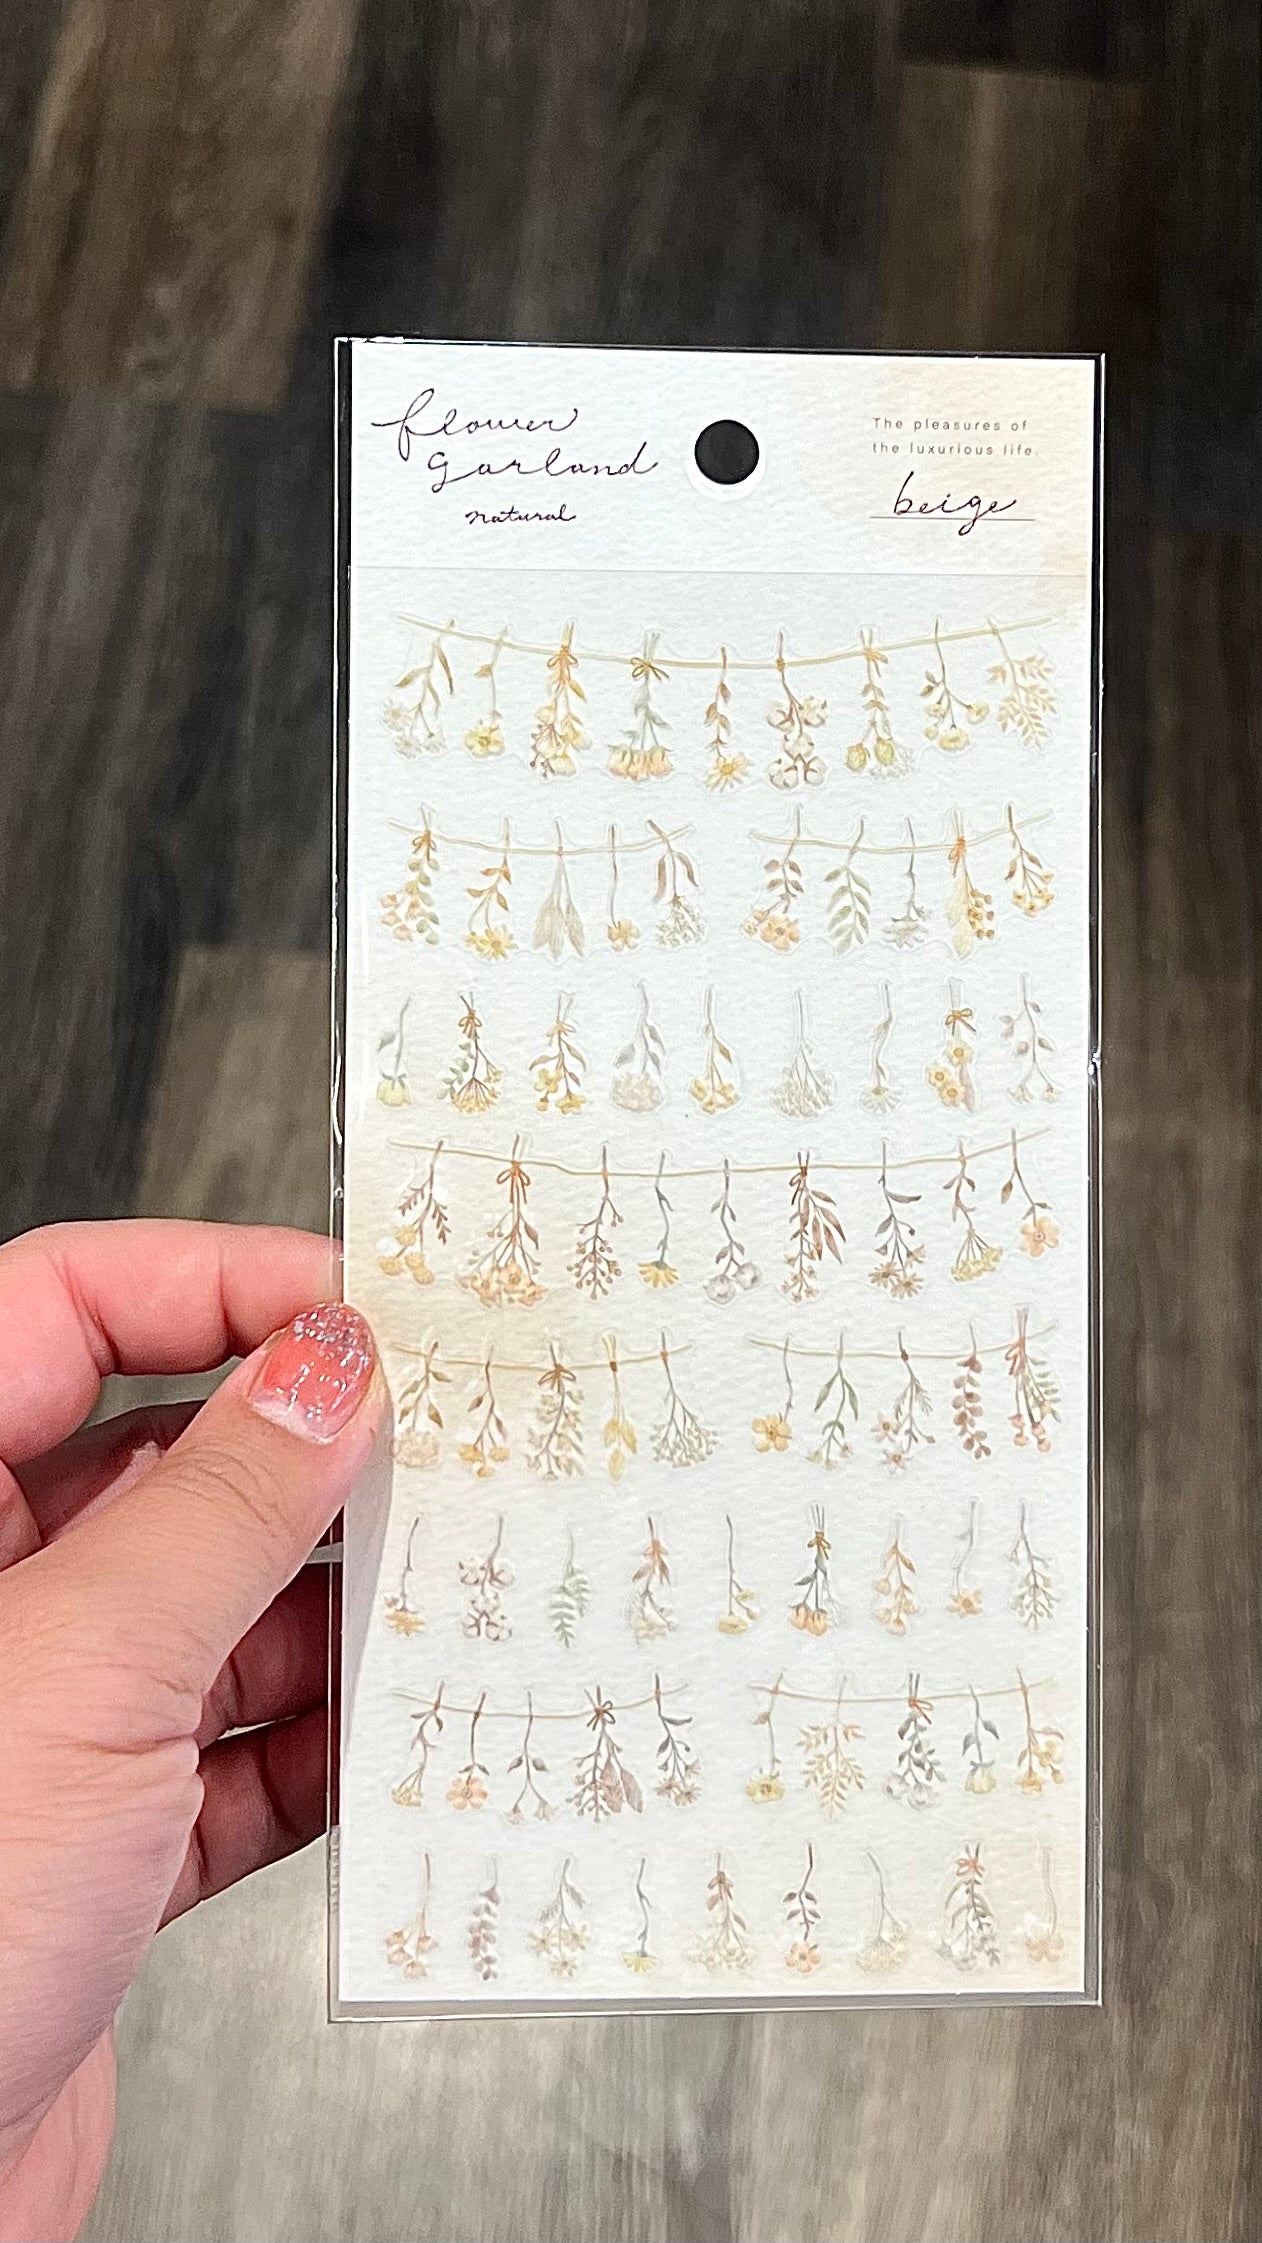 flower
garland
natural
The pleasures of
the luxurious life.
beige